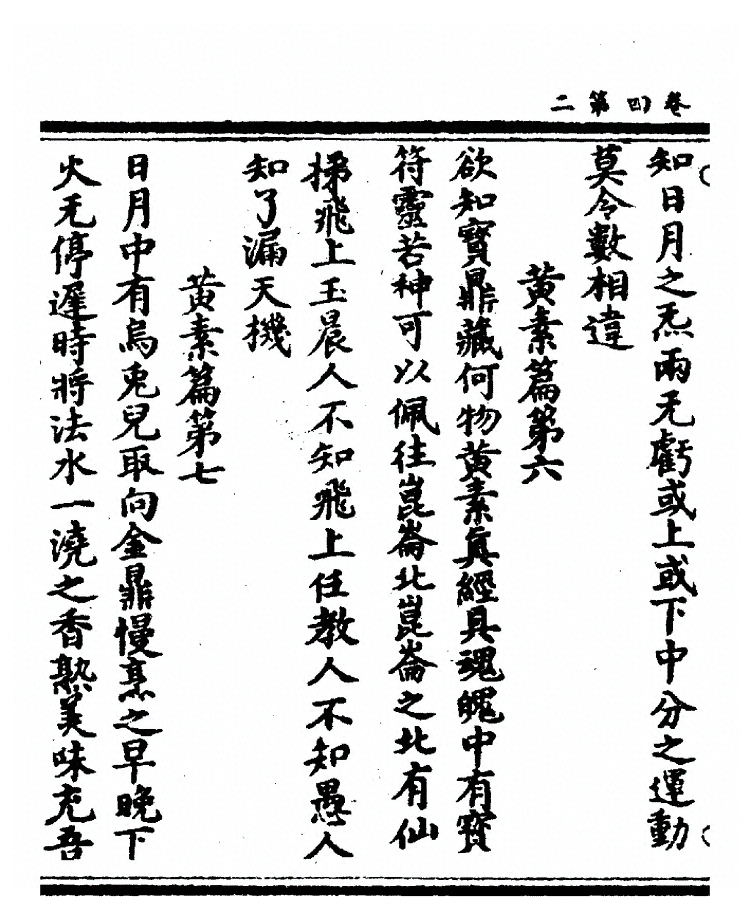 卷四第二
知日月之炁兩无虧或上或下中分之運動
莫令數相違
黄素篇第六
欲知寳鼎藏何物黄素真經具魂魄中有寳
符靈若神可以佩往崑崙北崑崙之北有仙
梯飛上玉晨人不知飛上任教人不知愚人
知了漏天機
黄素篇第七
日月中有烏兎兒取向金鼎慢烹之早晚下
火无停遲時將法水一澆之香熟美味充吾